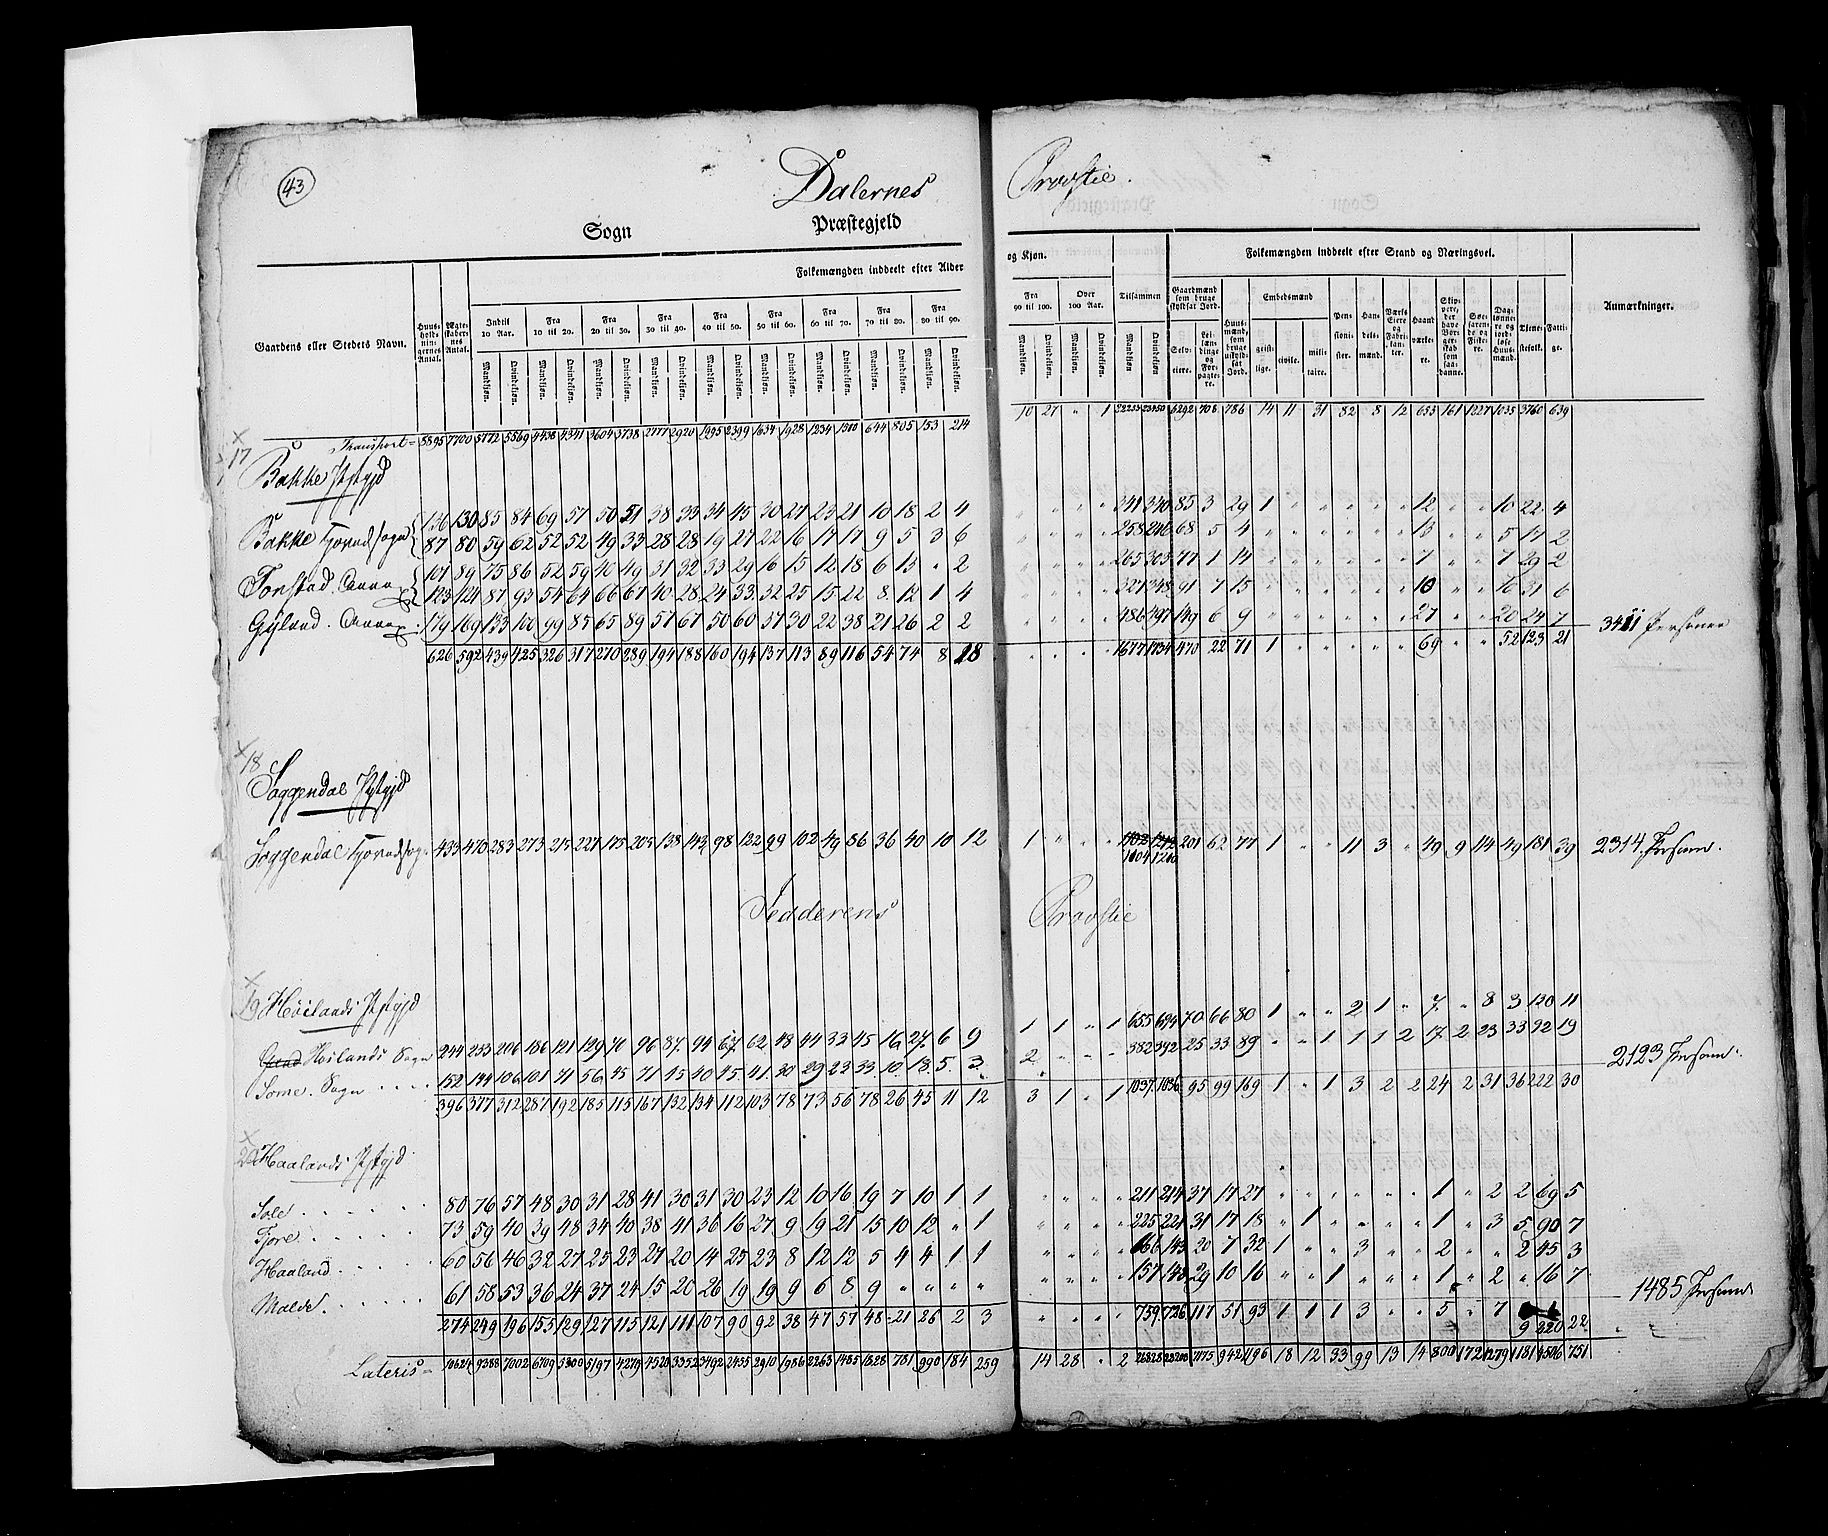 43
Dalernes Provstie.
Sogn Præstegjeld
Folkemængden inddeelt efter Alder og Kjøn. Folkemængden inddeelt efter Stand og Næringsvei.
Gaardens eller Stedets Navn. Huusholdningernes Antal. Ægteskabernes Antal. Indtil 10 Aar. Fra 10 til 20. Fra 20 til 30. Fra 30 til 40. Fra 40 til 50. Fra 50 til 60. Fra 60 til 70. Fra 70 til 80. Fra 80 til 90. Fra 90 til 100. Over 100 Aar. Tilsammen Gaardmænd som bruge skyldsat Jord. Huusmænd, som bruge uskyldsat Jord. Embedsmænd Pensionister. Handelsmænd. Værks Eiere og Fabrikanter. Haandværkere. Skippere, der have Borgerskab som saadanne. Søefarende og Fiskere. Dagslønnere og jordløse Huusmænd. Tjenestefolk. Fattige. Anmærkninger.
Mandkjøn. Qvindekjøn. Mandkjøn. Qvindekjøn. Mandkjøn. Qvindekjøn. Mandkjøn. Qvindekjøn. Mandkjøn. Qvindekjøn. Mandkjøn. Qvindekjøn. Mandkjøn. Qvindekjøn. Mandkjøn. Qvindekjøn. Mandkjøn. Qvindekjøn. Mandkjøn. Qvindekjøn. Mandkjøn. Qvindekjøn. Mandkjøn. Qvindekjøn. Selveiere. Leilændinge og Forpagtere. geistlige. civile. militaire.
Transport = 8895 7700 5772 5569 4438 4341 3604 3738 2777 2920 1995 2399 1634 1928 1234 1300 644 805 153 214 10 27 " 1 22233 23450 6292 708 786 14 11 31 82 8 12 653 161 1227 1035 3760 639
17
Bakke Pstgjd
136 130 85 84 69 57 50 51 38 33 34 45 30 27 23 21 10 18 2 4 " " " " 341 340 85 3 29 1 " " " " " 12 " " 10 22 4
Bakke Hovedsogn 87 80 59 62 52 52 49 33 28 28 19 27 22 16 17 17 9 5 3 6 " " " " 258 246 68 5 4 " " " " " " 13 " " 5 17 2
101 89 75 86 52 59 40 49 31 32 33 29 16 15 12 18 6 15 " 2 " " " " 265 305 77 1 14 " " " " " " 7 " " 7 29 2
Tonstad Annex 123 121 87 93 54 64 66 67 40 28 24 33 32 25 15 22 8 12 1 4 " " " " 327 348 91 7 15 " " " " " " 10 " " 10 31 6
Gyland. Annex 179 169 133 100 99 85 65 89 57 67 50 60 37 30 22 38 21 26 2 2 " " " " 486 497 149 6 9 " " " " " " 27 " " 20 24 7
626 592 439 425 326 317 270 289 194 188 160 194 137 113 89 116 54 74 8 18 " " " " 1677 1734 470 22 71 1 " " " " " 69 " " 52 123 21 3411 Personer
18
Soggendal Pstgjd
Soggendal Hovedsogn 433 470 283 273 215 227 175 205 138 143 98 122 99 102 49 86 36 40 10 12 1 " " " 1102 1212 201 62 77 1 " " 11 3 " 49 9 114 49 181 39 2314 Person.
1104 1210
Jedderens Provstie
19 Höilands Pstgjd
Höilands Sogn 244 233 206 186 121 129 70 96 87 94 67 62 48 44 33 45 16 27 6 9 1 1 " 1 655 694 70 66 80 1 " " 2 1 " 7 " 8 3 130 11
Some. Sogn 152 144 106 101 71 56 45 71 45 40 45 41 30 29 23 33 10 18 5 3 2 " " " 382 392 25 33 89 " " 1 1 1 2 17 2 23 33 92 19
396 377 312 287 192 185 115 167 132 134 112 103 78 73 56 78 26 45 11 12 3 1 " 1 1037 1086 95 99 169 1 " 1 3 2 2 24 2 31 36 222 30 2123 Person:
20 Haalands Pstgjd
Sole 80 76 57 48 30 31 28 41 30 31 30 23 12 10 16 19 7 10 1 1 " " " " 211 214 37 17 27 " " " " " " 1 " 2 2 69 5
Tjore 73 59 40 39 48 34 40 38 41 36 16 27 9 19 21 15 10 12 " 1 " " " " 225 221 31 17 18 " 1 " " " " 1 " 3 5 90 7
Haaland 60 56 46 32 27 25 23 27 20 14 25 23 8 12 12 5 4 4 1 1 " " " " 166 143 20 7 32 1 " " 3 " " 2 " " 2 45 3
Malde 61 58 53 36 24 37 24 15 20 26 19 19 9 6 8 9 " " " " " " " " 157 148 29 10 16 " " 1 " " " 1 " 2 " 16 7
274 249 196 155 129 127 115 121 111 107 90 92 38 47 57 48 21 26 2 3 " " " " 759 726 117 51 93 1 1 1 3 " " 5 " 7 9 220 22 1485 Persons
Lateris = 10624 9388 7002 6709 5300 5197 4279 4520 3352 3492 2455 2910 1986 2263 1485 1828 781 990 184 259 14 28 " 2 26828 28200 7175 942 1196 18 12 33 99 13 14 800 172 1279 1181 4506 751